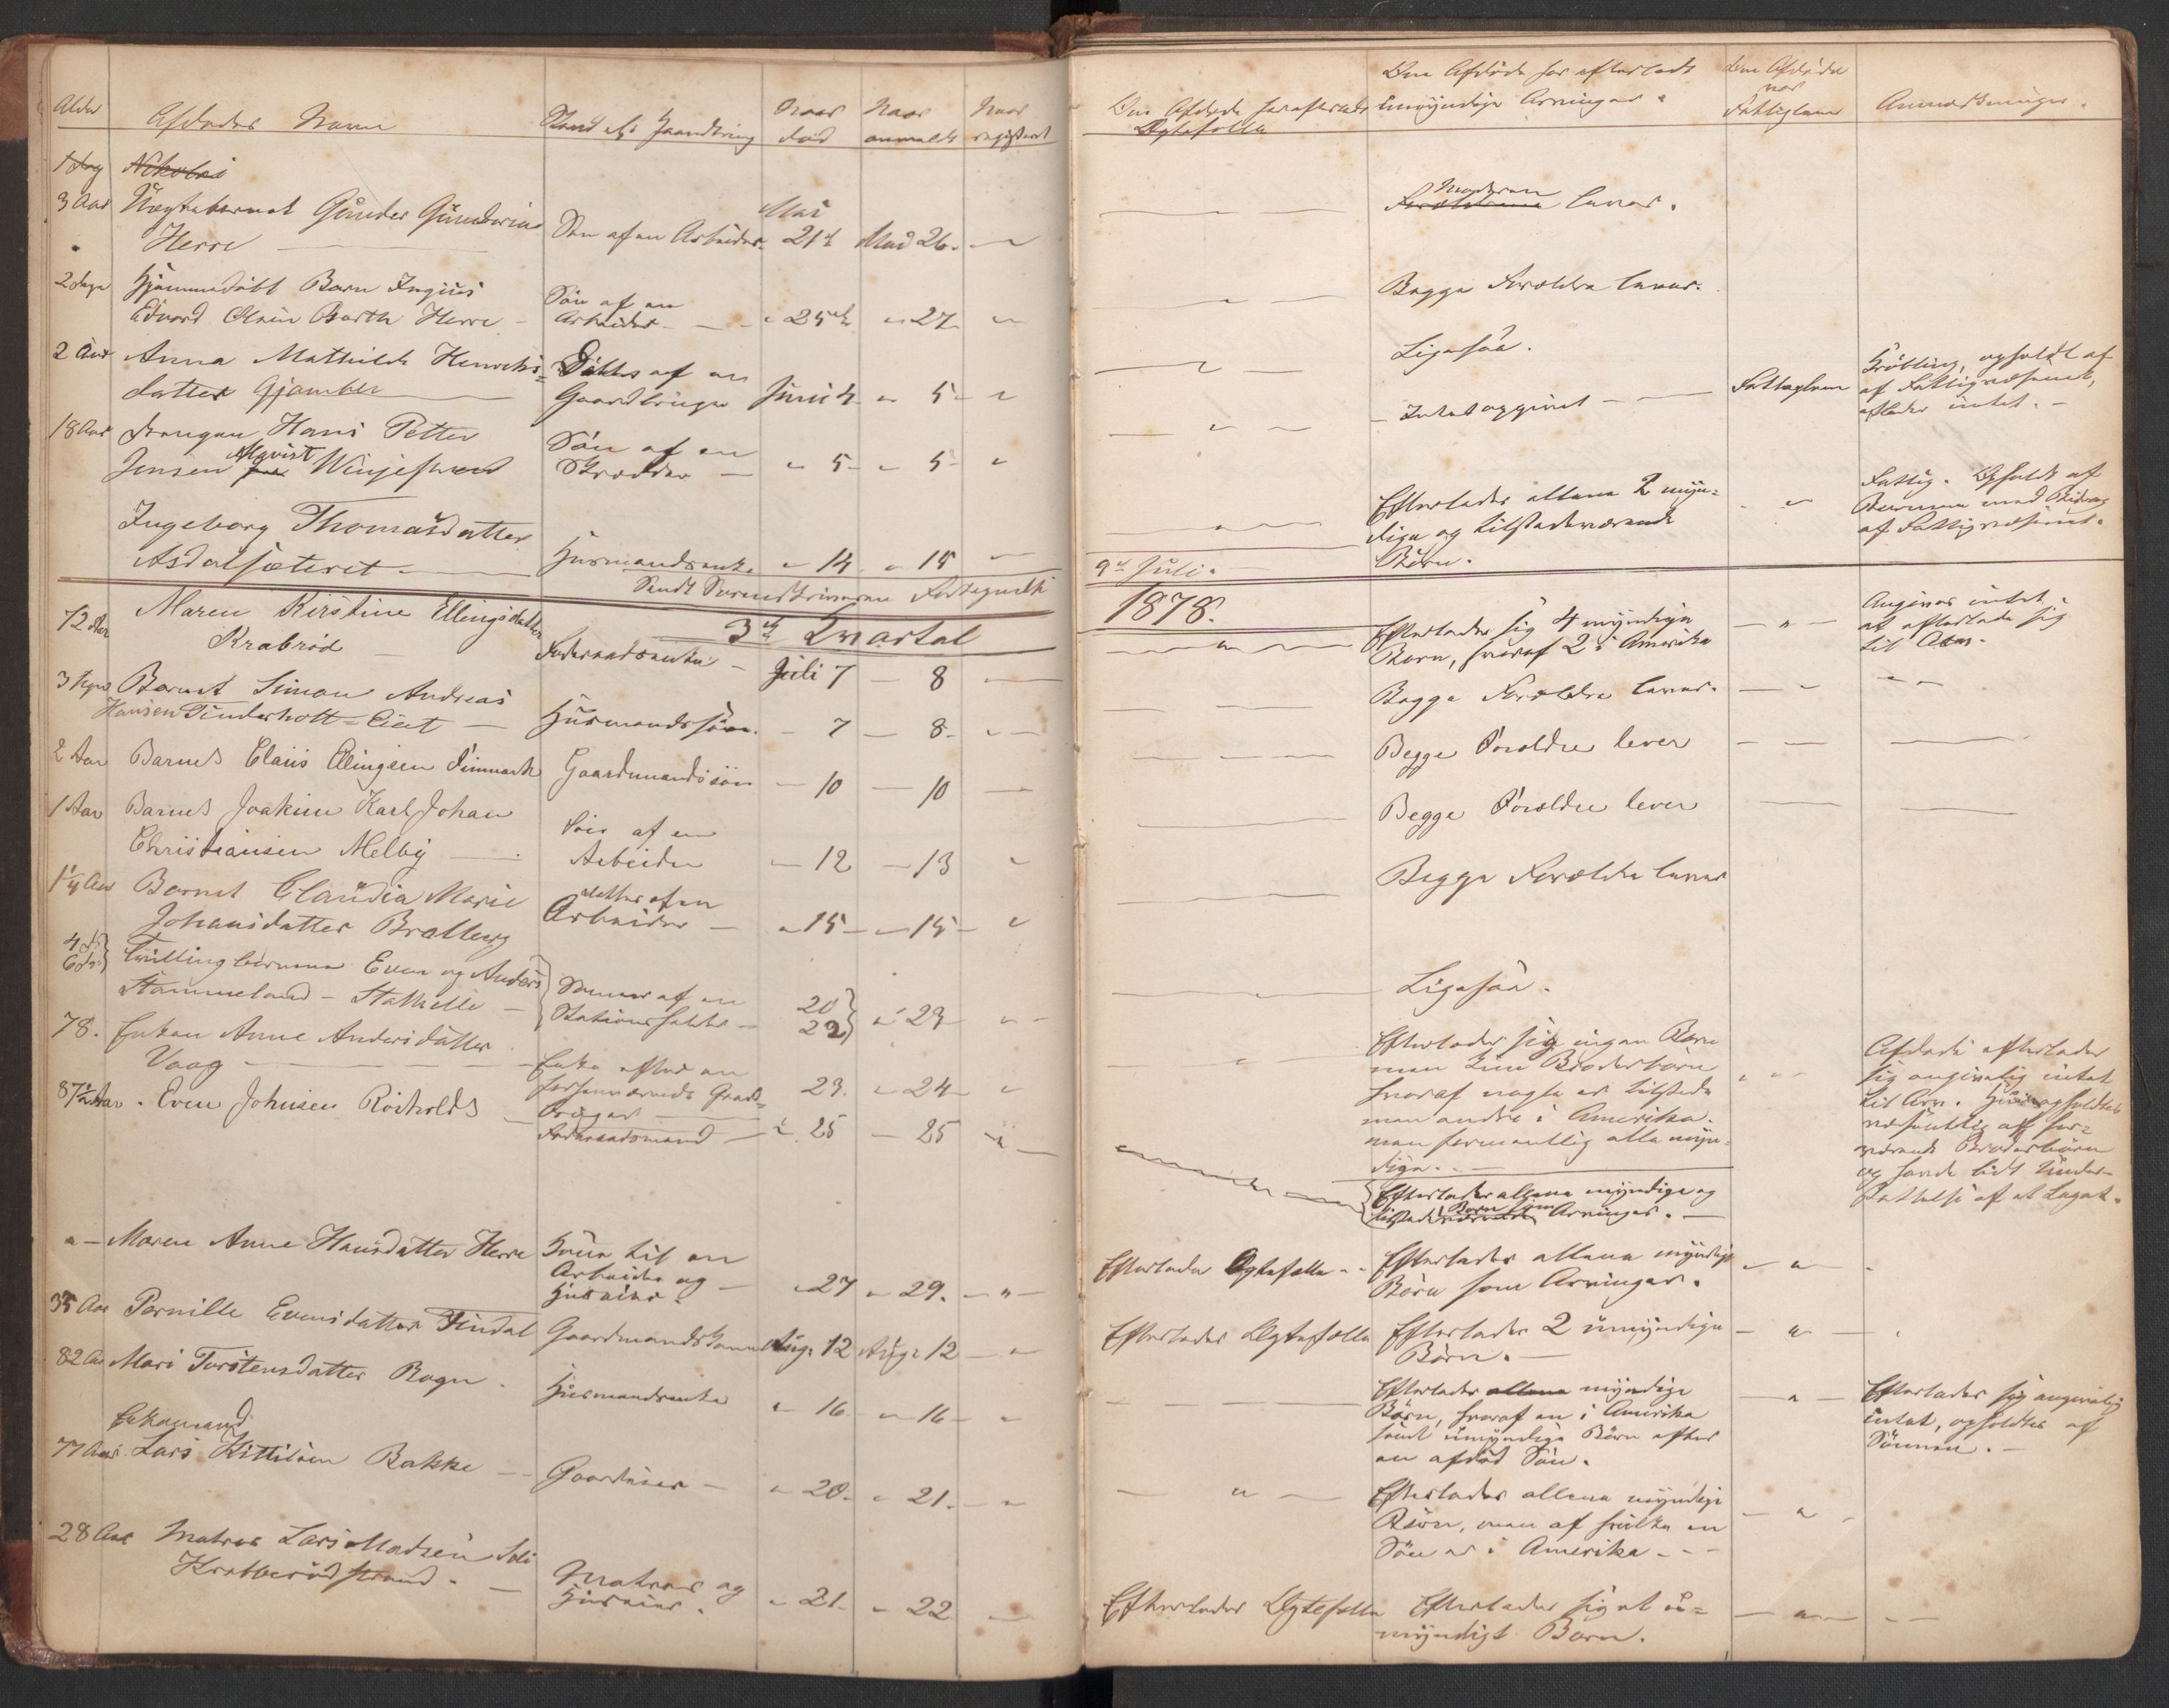 Alder
Afdødes Navn
Stand eller Haandtering
Naar død
Naar anmeldt
Naar registrert
1 dag Nikolai
3 Aar Uægtebarnet Gunder Gundersen
Herre
Søn af en Arbeider
Mai
21de Mai 26.
2 dage Hjemmedøbt Barn Ingius
Edvard Olsen Barth Herre
Søn af en
Arbeider
25de 27
2 Aar Anna Mathilde Henriks-
datter Gjømber
Datter af en
Gaardbruger Juni 4 5
18 Aar Drengen Hans Petter
Jensen Alqvist Winjestrand
Søn af en
Skrædder 5 5
Ingeborg Thomasdatter
Asdalsæteret
Husmandsenke 14 15
Sendt Sorenskriveren Fortegnelse
3die Qvartal
72 Aar Maren Kirstine Ellingsdatter
Krabrød
Føderaadsenke Juli 7 8
Barnet Simon Andreas
Hansen Tinderholt-Eiet
Husmandssøn 7 8
2 Aar Barnet Claus Ellingsen Finmark Gaardmandssøn 10 10
1 Aar Barnet Joakim Karl Johan
Christiansen Melby
Søn af en
Arbeider 12 13
1 1/4 Aar Barnet Claudia Marie
Johansdatter Bratberg
datter af en
Arbeider 15 15
4 d.
6 d.
Tvillingbørnene Even og Anders
Stammeland - Stathelle
Sønner af en
20
22
23
78. Enken Anne Andersdatter
Vaag
Enke efter en
forhenværende Gaard-
bruger 23. 24
87 1/2 Aar Even Johnsen Rørholdt
Føderaadsmand 25 25
Maren Anne Hansdatter Herre
Kone til en
Arbeider og
Huseier. 27 29.
35 Aar Pernille Evensdatter Findal Gaardmandskone Aug. 12 Aug. 12
82 Aar Mari Torstensdatter Rogn
Husmandsenke 16 16
Enkemand
77 Aar Lars Kittilsen Bakke
Gaardeier 20. 21.
28 Aar Matros Lars Madsen
Krabberødstrand.
Matros og
Huseier. 21. 22
Den Afdøde har efterladt
Ægtefælle
Den Afdøde har efterladt
Umyndige Arvinger
den Afdøde
var
Fattiglem
Anmærkninger.
Moderen
Forældrene lever.
Begge Forældre lever.
Ligesaa.
Intet opgivet
Fattiglem
Krøbling, opholdt af
af Fattigvæsenet,
eflader intet.
Efterlader allene 2 myn-
dige og tilstedeværende
Børn.
Fattig. Opholdt af
Børnene med Bidrag
af Fattigvæsenet.
9de Juli.
1878.
Efterlader sig 4 myndige
Børn, hvoraf 2 i Amerika
Angives intet
at efterlade sig
til Arv.
Begge Forældre lever.
Begge Forældre lever
Begge Forældre lever
Begge Forældre lever
Ligesaa.
Efterlader sig ingen Børn
men kun Broderbørn
hvoraf nogle er tilstede
men andre i Amerika.
men formentlig alle myn-
dige.
Afdøde efterlader
sig angivelig intet
til Arv. Hun opholdtes
væsentlig af hen-
værende Broderbørn
og havde lidt Under-
støttelse af et Legat.
Efterlader allene myndige og
tilstedeværende Børn som Arvinger.
Efterlader Ægtefælle
Efterlader allene myndige
Børn som Arvinger.
Efterlader Ægtefælle
Efterlader 2 umyndige
Børn.
Efterlader allene myndige
Børn, hvoraf en i Amerika
samt umyndige Børn efter
en afdød Søn.
Efterlader sig angivelig
intet, opholdtes af
Sønnen.
Efterlader allene myndige
Børn, men af hvilke en
Søn er i Amerika
Efterlader Ægtefælle
Efterlader sig et u-
myndigt Barn.